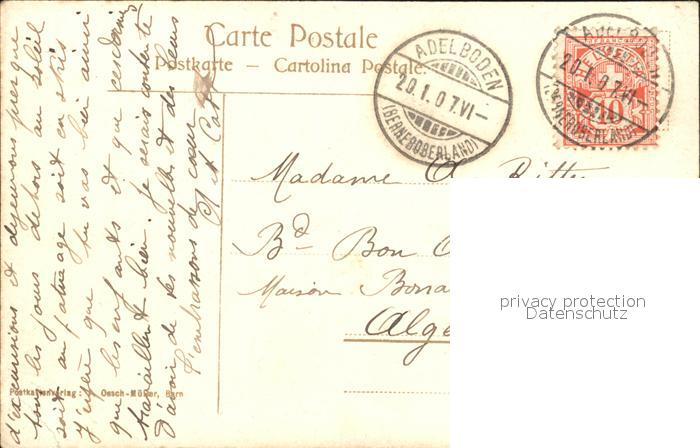 Carte Postale
Postkarte – Cartolina Postale.
ADELBODEN
20.1.07.VI–
(BERNEROBERLAND)
ADELBODEN
20.1.07.VI–
(BERNEROBERLAND)
HELVETIA
10
Madame A. Ritter
Bd Bon
Maison Bona
Alge
privacy protection
Datenschutz
d'excursions et déjeunons presque
tous les jours dehors au soleil
soit au patinage soit en skis
J'espère que tu vas bien ainsi
que les enfants et que ces dames
travaillent bien. Je serais contente
d'avoir de tes nouvelles et des leurs
t'embrassons de cœur
Postkartenverlag: Oesch-Müller, Bern